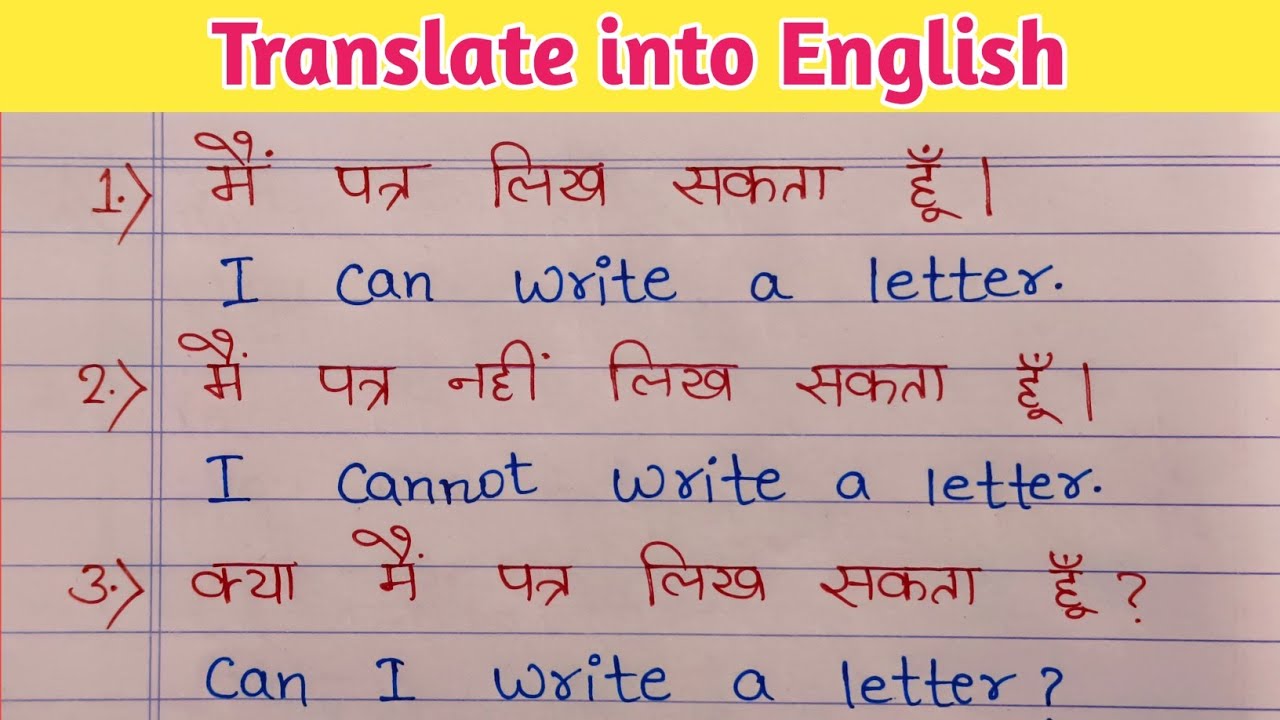 Translate into English
1.) मैं पत्र लिख सकता हूँ।
I can write a letter.
2.) मैं पत्र नहीं लिख सकता हूँ।
I cannot write a letter.
3.) क्या मैं पत्र लिख सकता हूँ?
Can I write a letter?